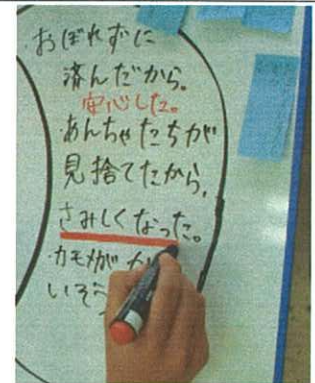 おぼれずに
済んだから。
安心した。
あんちゃたちが
見捨てたから、
さみしくなった。
カモメが
いそう